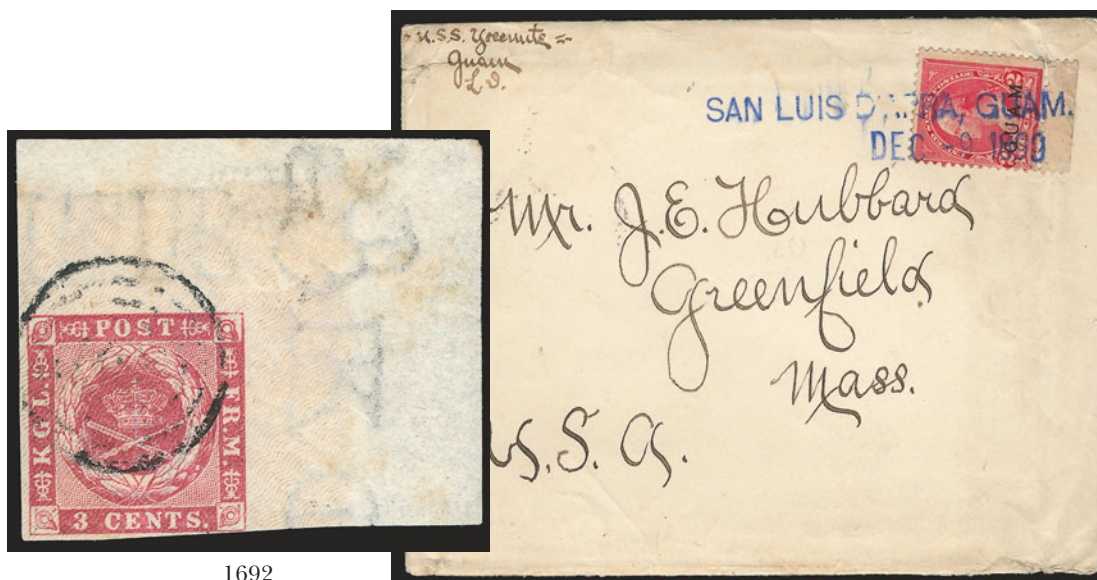 U.S.S. Yosemite
Guam
L.I.
SAN LUIS D'APRA, GUAM.
DEC -9 1899
POSTAGE
GUAM
Mr. J.E. Hubbard
Greenfield
Mass.
U.S.A.
POST
KGL.
FRM.
3 CENTS.
1692